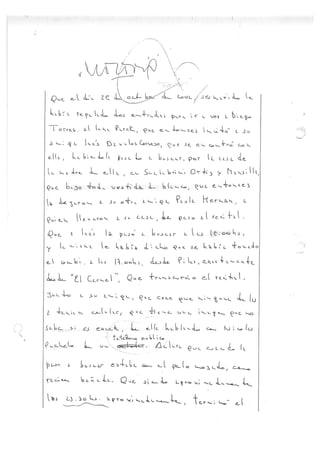 Que el día 26 de octubre de
había regalado dos entradas para ir a ver a Diego
Torres, al Luna Park, que entonces invitó a su
amiga Inés, que se encontró con
ella, habiéndola pasado a buscar, por la casa de
la madre de ella, en Scalabrini Ortiz y Mansilla,
que bajó toda vestida de blanco, que entonces
la dejaron a su otra amiga Paula
quien llevaron a su casa, de paso al recital.
Que a Inés la pasó a buscar a las
y la misma le había dicho que se había tomado
el combi, a las 17.00hs, desde Pilar, exactamente
desde "El Carmel", Que transcurrió el recital.
Junto a su amiga, que cree que ninguna de las
2 tenían celular, que tiene una imagen que no
sabe si es exacta, de ella hablando con Nicolás
Pachelo de un teléfono público. Aclara que cuando la
pasó a buscar estaba con el pelo mojado, como
recién bañada. Que siendo aproximadamente
las 23.30hs. aproximadamente, terminó el